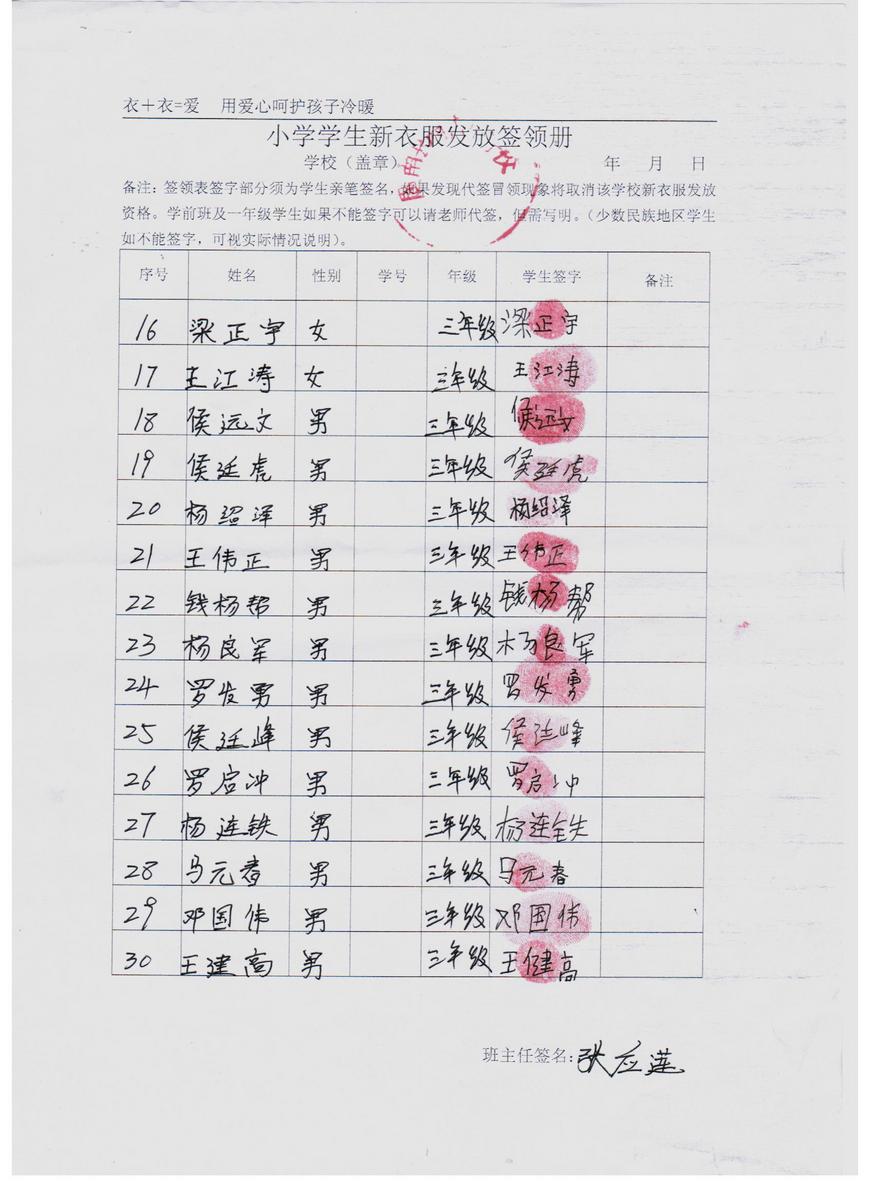 衣＋衣=爱　用爱心呵护孩子冷暖
小学学生新衣服发放签领册
学校（盖章）　年　月　日
备注：签领表签字部分须为学生亲笔签名，如果发现代签冒领现象将取消该学校新衣服发放
资格。学前班及一年级学生如果不能签字可以请老师代签，但需写明。（少数民族地区学生
如不能签字，可视实际情况说明）。
序号 姓名 性别 学号 年级 学生签字 备注
16 梁正宇 女 三年级 梁正宇
17 王江涛 女 三年级 王江涛
18 侯远文 男 三年级 侯远文
19 侯廷虎 男 三年级 侯廷虎
20 杨绍泽 男 三年级 杨绍泽
21 王伟正 男 三年级 王伟正
22 钱杨帮 男 三年级 钱杨帮
23 杨良军 男 三年级 杨良军
24 罗发勇 男 三年级 罗发勇
25 侯廷峰 男 三年级 侯廷峰
26 罗启冲 男 三年级 罗启冲
27 杨连铁 男 三年级 杨连铁
28 马元春 男 三年级 马元春
29 邓国伟 男 三年级 邓国伟
30 王建高 男 三年级 王健高
班主任签名：张应莲